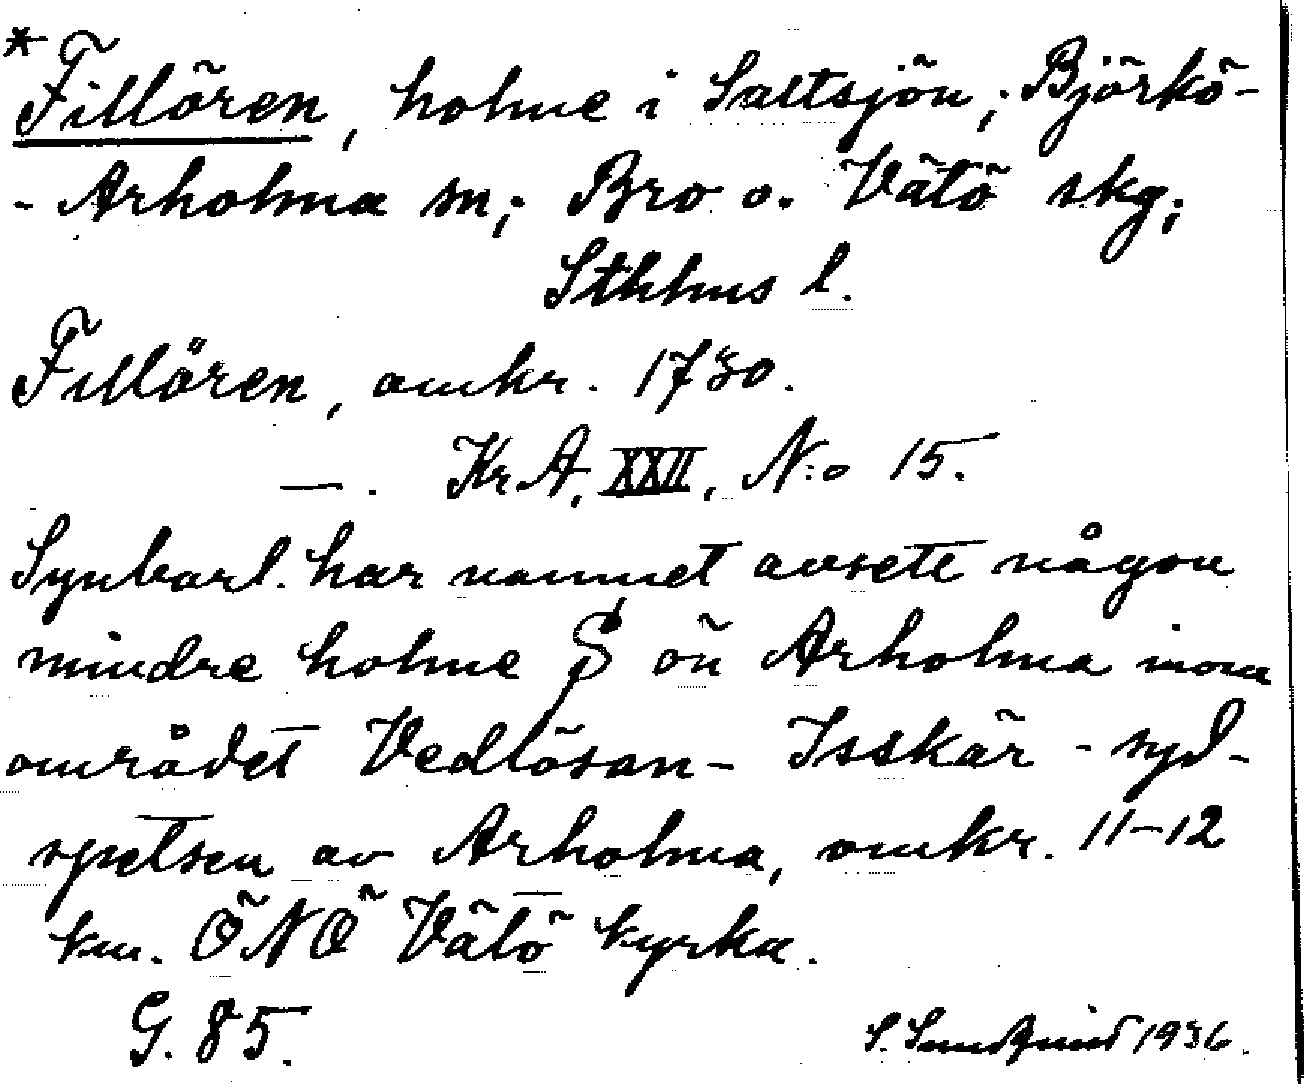 *Fillören, holme i Saltsjön; Björkö-
- Arholma sn; Bro o. Vätö skg;
Sthlms l.
Fillören, omkr. 1730.
—. Kr.A, XXII, N:o 15.
Synbarl. har namnet avsett någon
mindre holme S ön Arholma inom
området Vedlösan - Isskär - syd-
spetsen av Arholma, omkr. 11-12
km. ÖNÖ Vätö kyrka.
G. 85.
S. Sundqvist 1936.